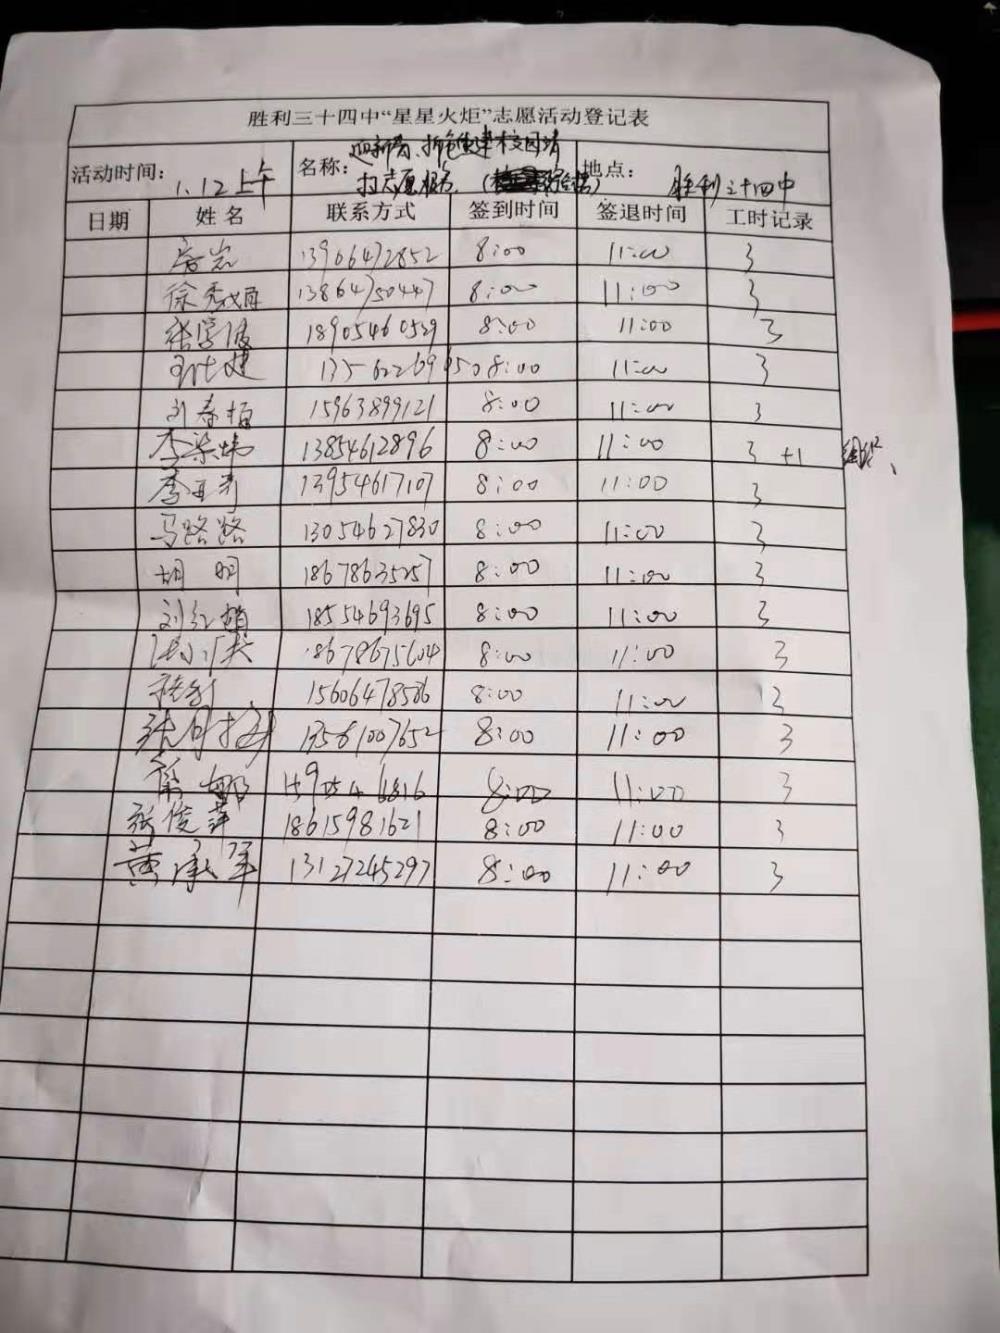 胜利三十四中“星星火炬”志愿活动登记表
活动时间: 1.12上午 名称: 迎新春、 校园清扫志愿服务 地点: 胜利三十四中
日期 姓名 联系方式 签到时间 签退时间 工时记录
13906472852 8:00 11:00 3
徐秀娟 13864750447 8:00 11:00 3
张学波 18905460529 8:00 11:00 3
8:00 11:00 3
刘春梅 15963899121 8:00 11:00 3
李梁炜 13854612896 8:00 11:00 3 +1
李亚利 13954617107 8:00 11:00 3
马路路 13054627830 8:00 11:00 3
胡明 18678635257 8:00 11:00 3
刘红梅 18554693695 8:00 11:00 3
18678675604 8:00 11:00 3
15606478586 8:00 11:00 3
张月梅 13561007652 8:00 11:00 3
8:00 11:00 3
张俊萍 18615981621 8:00 11:00 3
黄承军 13127245297 8:00 11:00 3